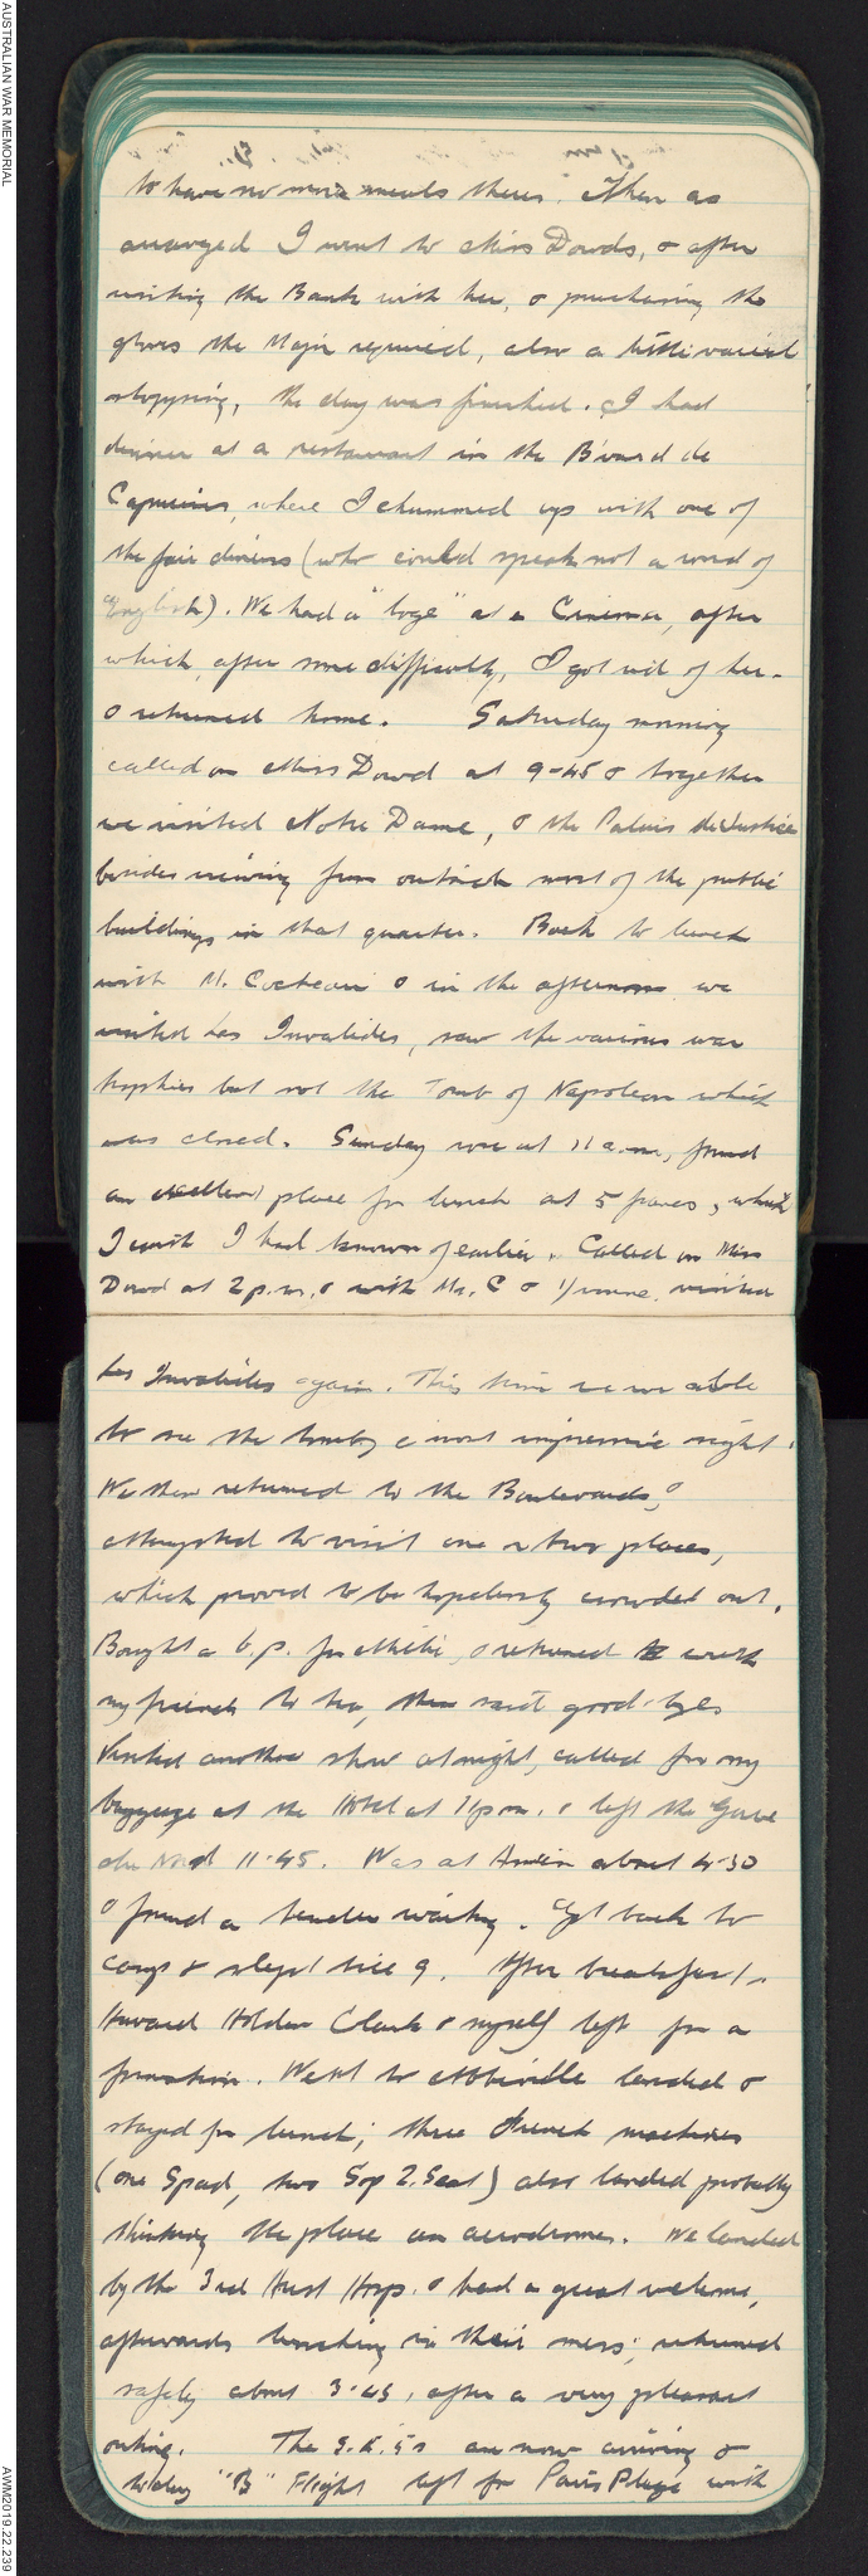 AUSTRALIAN WAR MEMORIAL
to have no more meals there. Then as
arranged I went to Miss Dowds, & after
visiting the Bank with her, & purchasing the
gloves the Major required, also a little varied
shopping, the day was finished. I had
dinner at a restaurant in the B'vard de
Capucines, where I chummed up with one of
the fair diners (who could speak not a word of
English). We had a "loge" at a Cinema, after
which, after some difficulty, I got rid of her.
& returned home. Saturday morning
called on Miss Dowd at 9-45 & together
we visited Notre Dame, & the Palais de Justice
besides viewing from outside most of the public
buildings in that quarter. Back to lunch
with M. Cocteau & in the afternoon we
visited Les Invalides, saw the various war
trophies but not the Tomb of Napoleon which
was closed. Sunday rose at 11 a.m, found
an excellent place for lunch at 5 francs, which
I wish I had known of earlier. Called on Miss
Dowd at 2 p.m. & with Mr. C & Yvonne visited
Les Invalides again. This time we were able
to see the tomb, a most impressive sight.
We then returned to the Boulevards, &
attempted to visit one or two places,
which proved to be hopelessly crowded out.
Bought a b.p. for & returned with
my friends to tea, then said good-byes
Visited another show at night, called for my
baggage at the Hotel at 11pm. & left the Gare
du Nord 11.45. Was at about 4.30
& found a tender waiting. Got back to
camp & slept till 9. After breakfast
Howard Holden Clark & myself left for a
formation. Went to Abbeville landed &
stayed for lunch; three French machines
(one Spad, two Sop 2. Seat) also landed probably
thinking the place an aerodrome. We landed
by the 3rd Aust Hosp. & had a great welcome,
afterwards lunching in their mess; returned
safely about 3.45, after a very pleasant
outing. The S.E.5s are now arriving &
today "B" Flight left for Paris Plage with
AWM2019.22.239